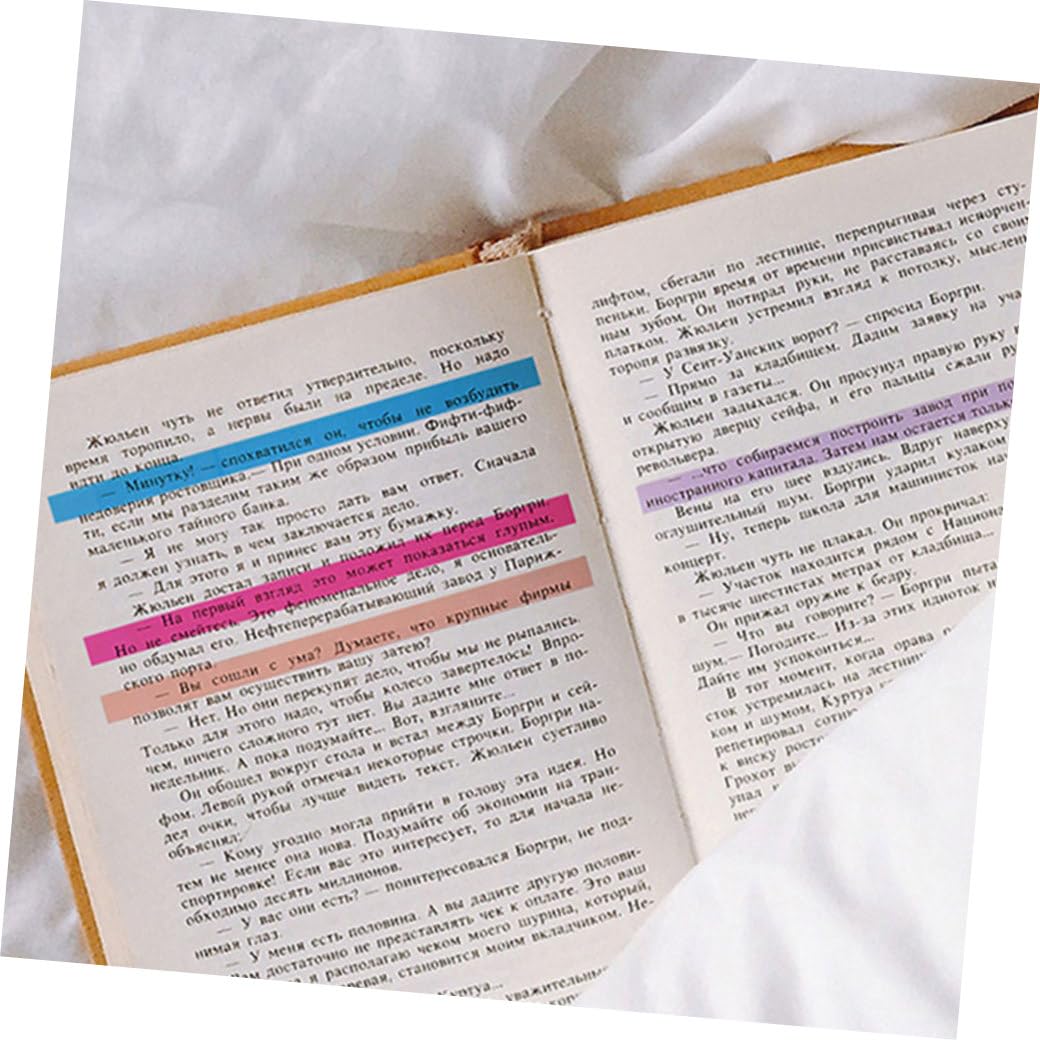 Жюльен чуть не ответил утвердительно, поскольку
время торопило, а нервы были на пределе. Но надо
идти до конца.
— Минутку! — спохватился он, чтобы не возбудить
недоверия ростовщика.— При одном условии. Фифти-фиф-
ти, если мы разделим таким же образом прибыль вашего
маленького тайного банка.
— Я не могу так просто дать вам ответ. Сначала
я должен узнать, в чем заключается дело.
— Для этого я и принес вам эту бумажку.
Жюльен достал записи и положил их перед Боргри.
— На первый взгляд это может показаться глупым.
Но не смейтесь. Это феноменальное дело, я основатель-
но обдумал его. Нефтеперерабатывающий завод у Париж-
ского порта.
— Вы сошли с ума? Думаете, что крупные фирмы
позволят вам осуществить вашу затею?
— Нет. Но они перекупят дело, чтобы мы не рыпались.
Только для этого надо, чтобы колесо завертелось! Впро-
чем, ничего сложного тут нет. Вы дадите мне ответ в по-
недельник. А пока подумайте... Вот, взгляните...
Он обошел вокруг стола и встал между Боргри и сей-
фом. Левой рукой отмечал некоторые строчки. Боргри на-
дел очки, чтобы лучше видеть текст. Жюльен суетливо
объяснял:
— Кому угодно могла прийти в голову эта идея. Но
тем не менее она нова. Подумайте об экономии на тран-
спортировке! Если вас это интересует, то для начала не-
обходимо десять миллионов.
— У вас они есть? — поинтересовался Боргри, не под-
нимая глаз.
— У меня есть половина. А вы дадите другую полови-
достаточно не представлять чек к оплате. Это ваш
я располагаю чеком моего шурина, который,
становится моим вкладчиком. Не-
Куртуа...
уважительны
лифтом, сбегали по лестнице, перепрыгивая через сту-
пеньки. Боргри время от времени присвистывал испорчен
ным зубом. Он потирал руки, не расставаясь со свои
платком. Жюльен устремил взгляд к потолку, мыслен
торопя развязку.
— У Сент-Уанских ворот? — спросил Боргри.
— Прямо за кладбищем. Дадим заявку на уча
и сообщим в газеты...
Жюльен задыхался. Он просунул правую руку в
открытую дверцу сейфа, и его пальцы сжали ру
револьвера.
— ...что собираемся построить завод при по
иностранного капитала. Затем нам остается тольк
Вены на его шее вздулись. Вдруг наверху
оглушительный шум. Боргри ударил кулаком
— Ну, теперь школа для машинисток на
концерт.
Жюльен чуть не плакал. Он прокричал:
— Участок находится рядом с Национа
в тысяче шестистах метрах от кладбища...
Он прижал оружие к бедру.
— Что вы говорите? — Боргри пыта
шум.— Погодите... Из-за этих идиоток н
Дайте им успокоиться...
В тот момент, когда орава
сток устремилась на лестни
ком и шумом, Куртуа
репетировал сотн
к виску рост
Грохот в
упал
не